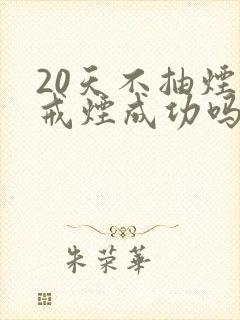 20天不抽煙
戒煙成功吗
朱荣華